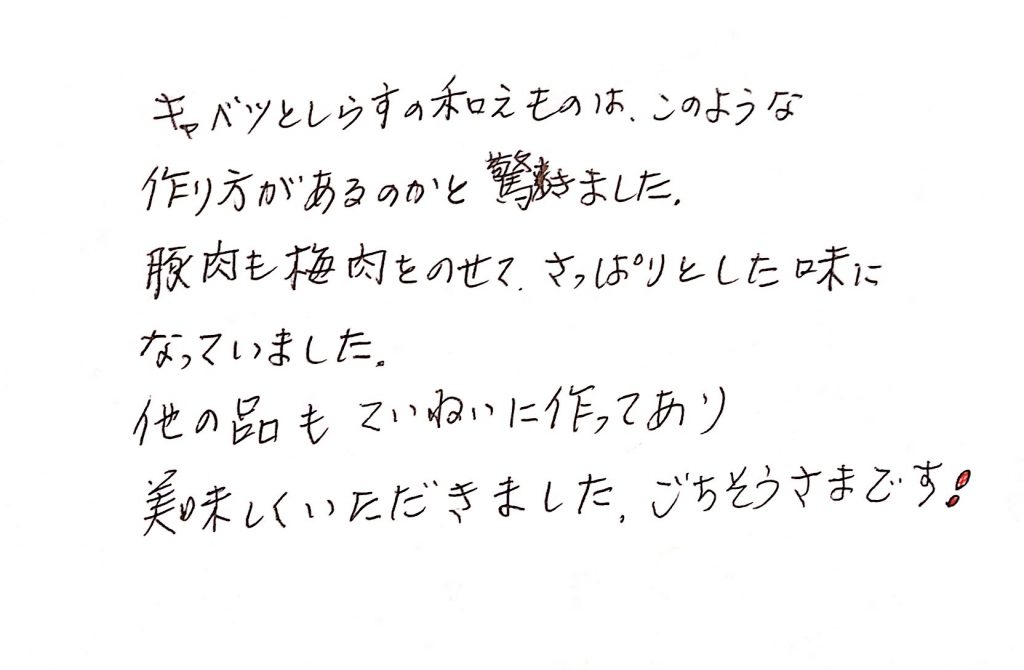 キャベツとしらすの和えものは、このような
作り方があるのかと驚きました。
豚肉も梅肉をのせて、さっぱりとした味に
なっていました。
他の品もていねいに作ってあり
美味しくいただきました。ごちそうさまです!